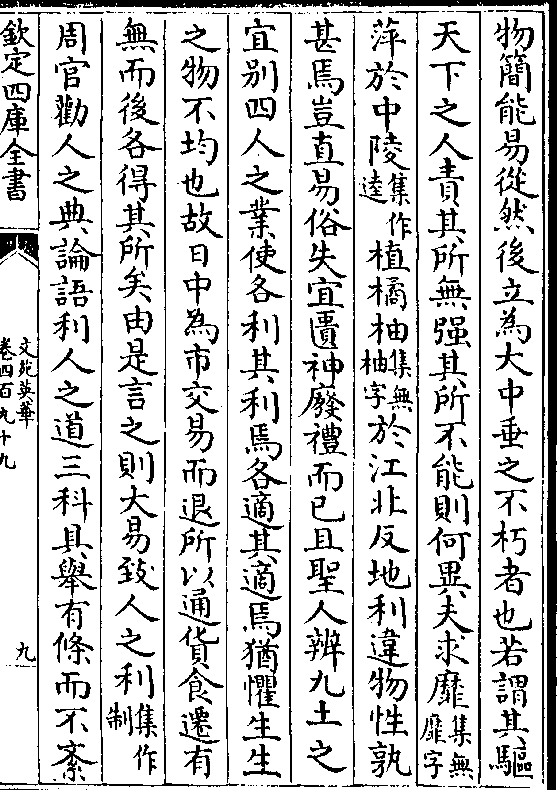 物簡能易從然後立為大中垂之不朽者也若謂其驅
天下之人責其所無强其所不能則何異夫求靡集無靡字
萍於中陵集作逵植橘柚集無柚字於江北反地利違物性孰
甚焉豈直易俗失宜匱神廢禮而已且聖人辨九土之
宜别四人之業使各利其利焉各適其適焉猶懼生生
之物不均也故日中為市交易而退所以通貨食遷有
無而後各得其所矣由是言之則大易致人之利集作制
周官勸人之典論語利人之道三科具舉有條而不紊
欽定四庫全書
文苑英華
卷四百九十九
九